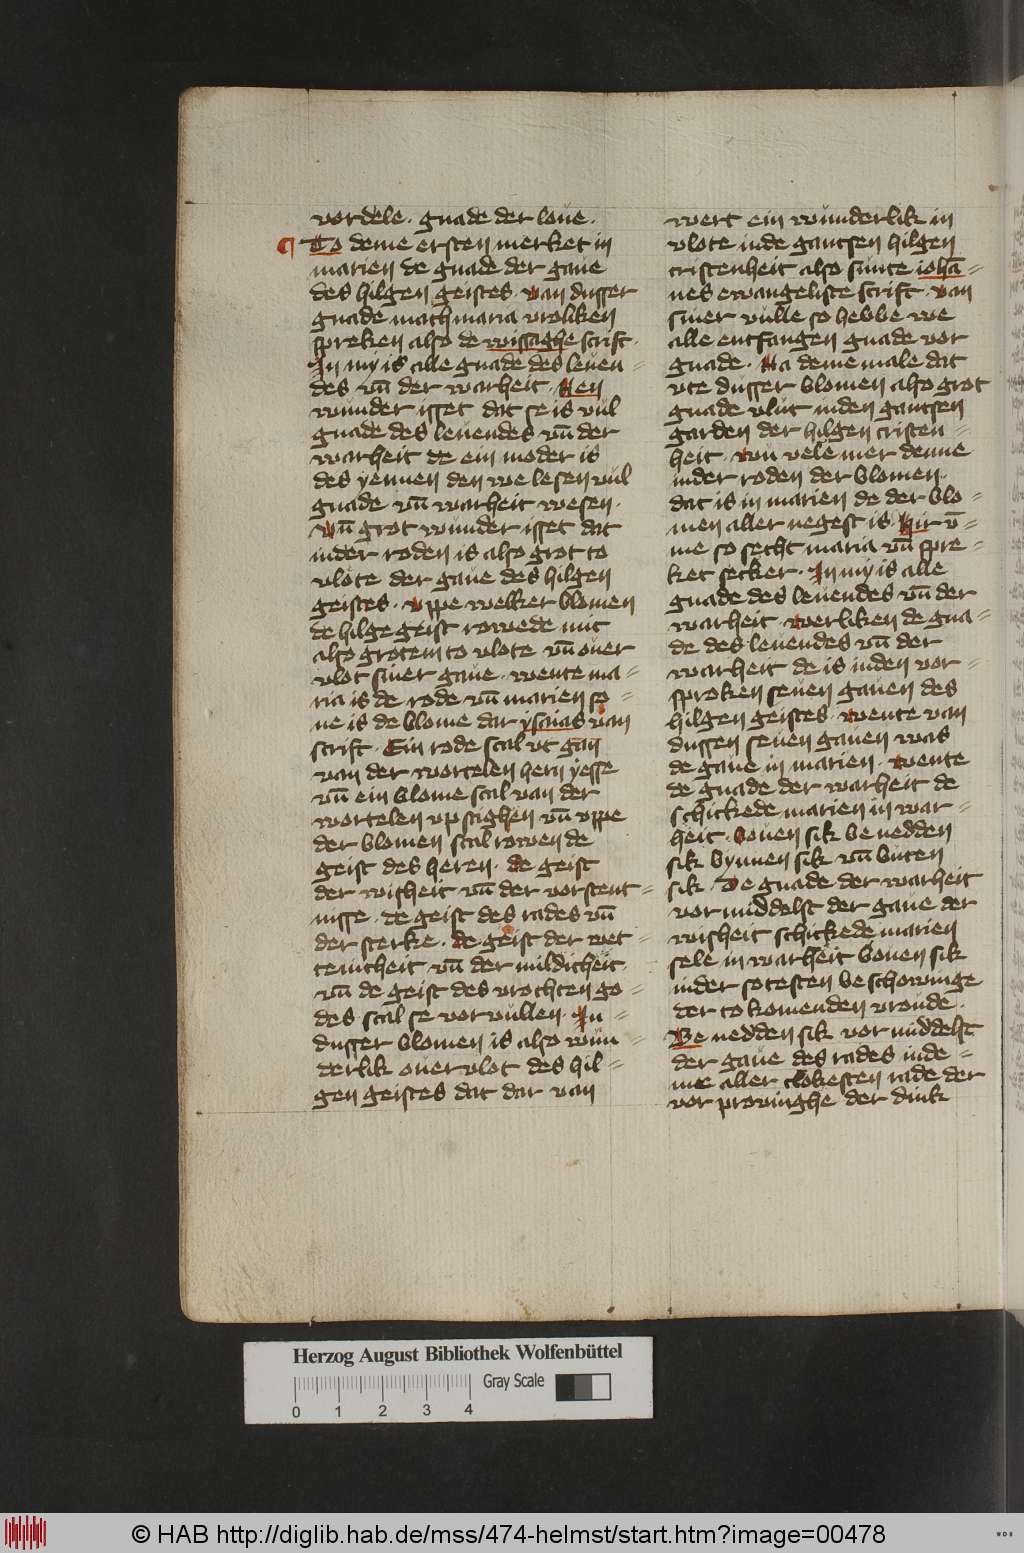 vordele · gnade der loue ·
¶ To deme ersten merket in
marien de gnade der gaue
des hilgen geistes · van dusser
gnade mach maria vroliken
spreken also de wissaghe scrift ·
In my is alle gnade des leuen=
des vn̄ der warheit · Nen
wunder isset dat se is vul
gnade des leuendes vn̄ der
warheit de ein moder is
des yennen den we lesen vul
gnade vn̄ warheit wesen ·
Vn̄ grot wunder isset dat
inder roden is also grot to
vlote der gaue des hilgen
geistes · vppe welker blomen
de hilge geist rowede mit
also grotem to vlote vn̄ ouer
vlot siner gaue · wente ma=
ria is de rode vn̄ marien so=
ne is de blome dar ysaias van
scrift · Ein rode scal vt gan
van der wortelen hern yesse
vn̄ ein blome scal van der
wortelen vp stighen vn̄ vppe
der blomen scal rowen de
geist des heren · de geist
der wisheit vn̄ der vorstent=
nisse · de geist des rades vn̄
der sterke · de geist der wet=
tenicheit vn̄ der mildicheit ·
vn̄ de geist des vrochten go=
des scal se vor vullen · In=
dusser blomen is also wun=
derlik ouer vlot des hil=
gen geistes dat dar van
wert ein wunderlik in
vlote inde gantsen hilgen
cristenheit also sunte iohā=
nes ewangeliste scrift · van
siner vulle so hebbe we
alle entfangen gnade vor
gnade · Na deme male dat
vte dusser blomen also grot
gnade vlut inden gantsen
garden der hilgen cristen=
heit · wu vele mer denne
inder roden der blomen ·
dat is in marien de der blo=
men aller negest is · Hir v̄=
me so secht maria vn̄ spre=
ket secker · In my is alle
gnade des leuendes vn̄ der
warheit · werliken de gna=
de des leuendes vn̄ der
warheit de is inden vor=
sproken seuen gauen des
hilgen geistes · wente van
dussen seuen gauen was
de gaue in marien · wente
de gnade der warheit de
schickede marien in war=
heit · bouen sik be nedden
sik bynnen sik vn̄ buten
sik · De gnade der warheit
vor middelst der gaue der
wisheit schickede marien
sele in warheit bouen sik
inder sotesten be schowinge
der to komenden vroude ·
Be nedden sik vor middelst
der gaue des rades inde=
me aller clokesten rade der
vor provinghe der dink
Herzog August Bibliothek Wolfenbüttel
Gray Scale
0 1 2 3 4
© HAB http://diglib.hab.de/mss/474-helmst/start.htm?image=00478
WDB